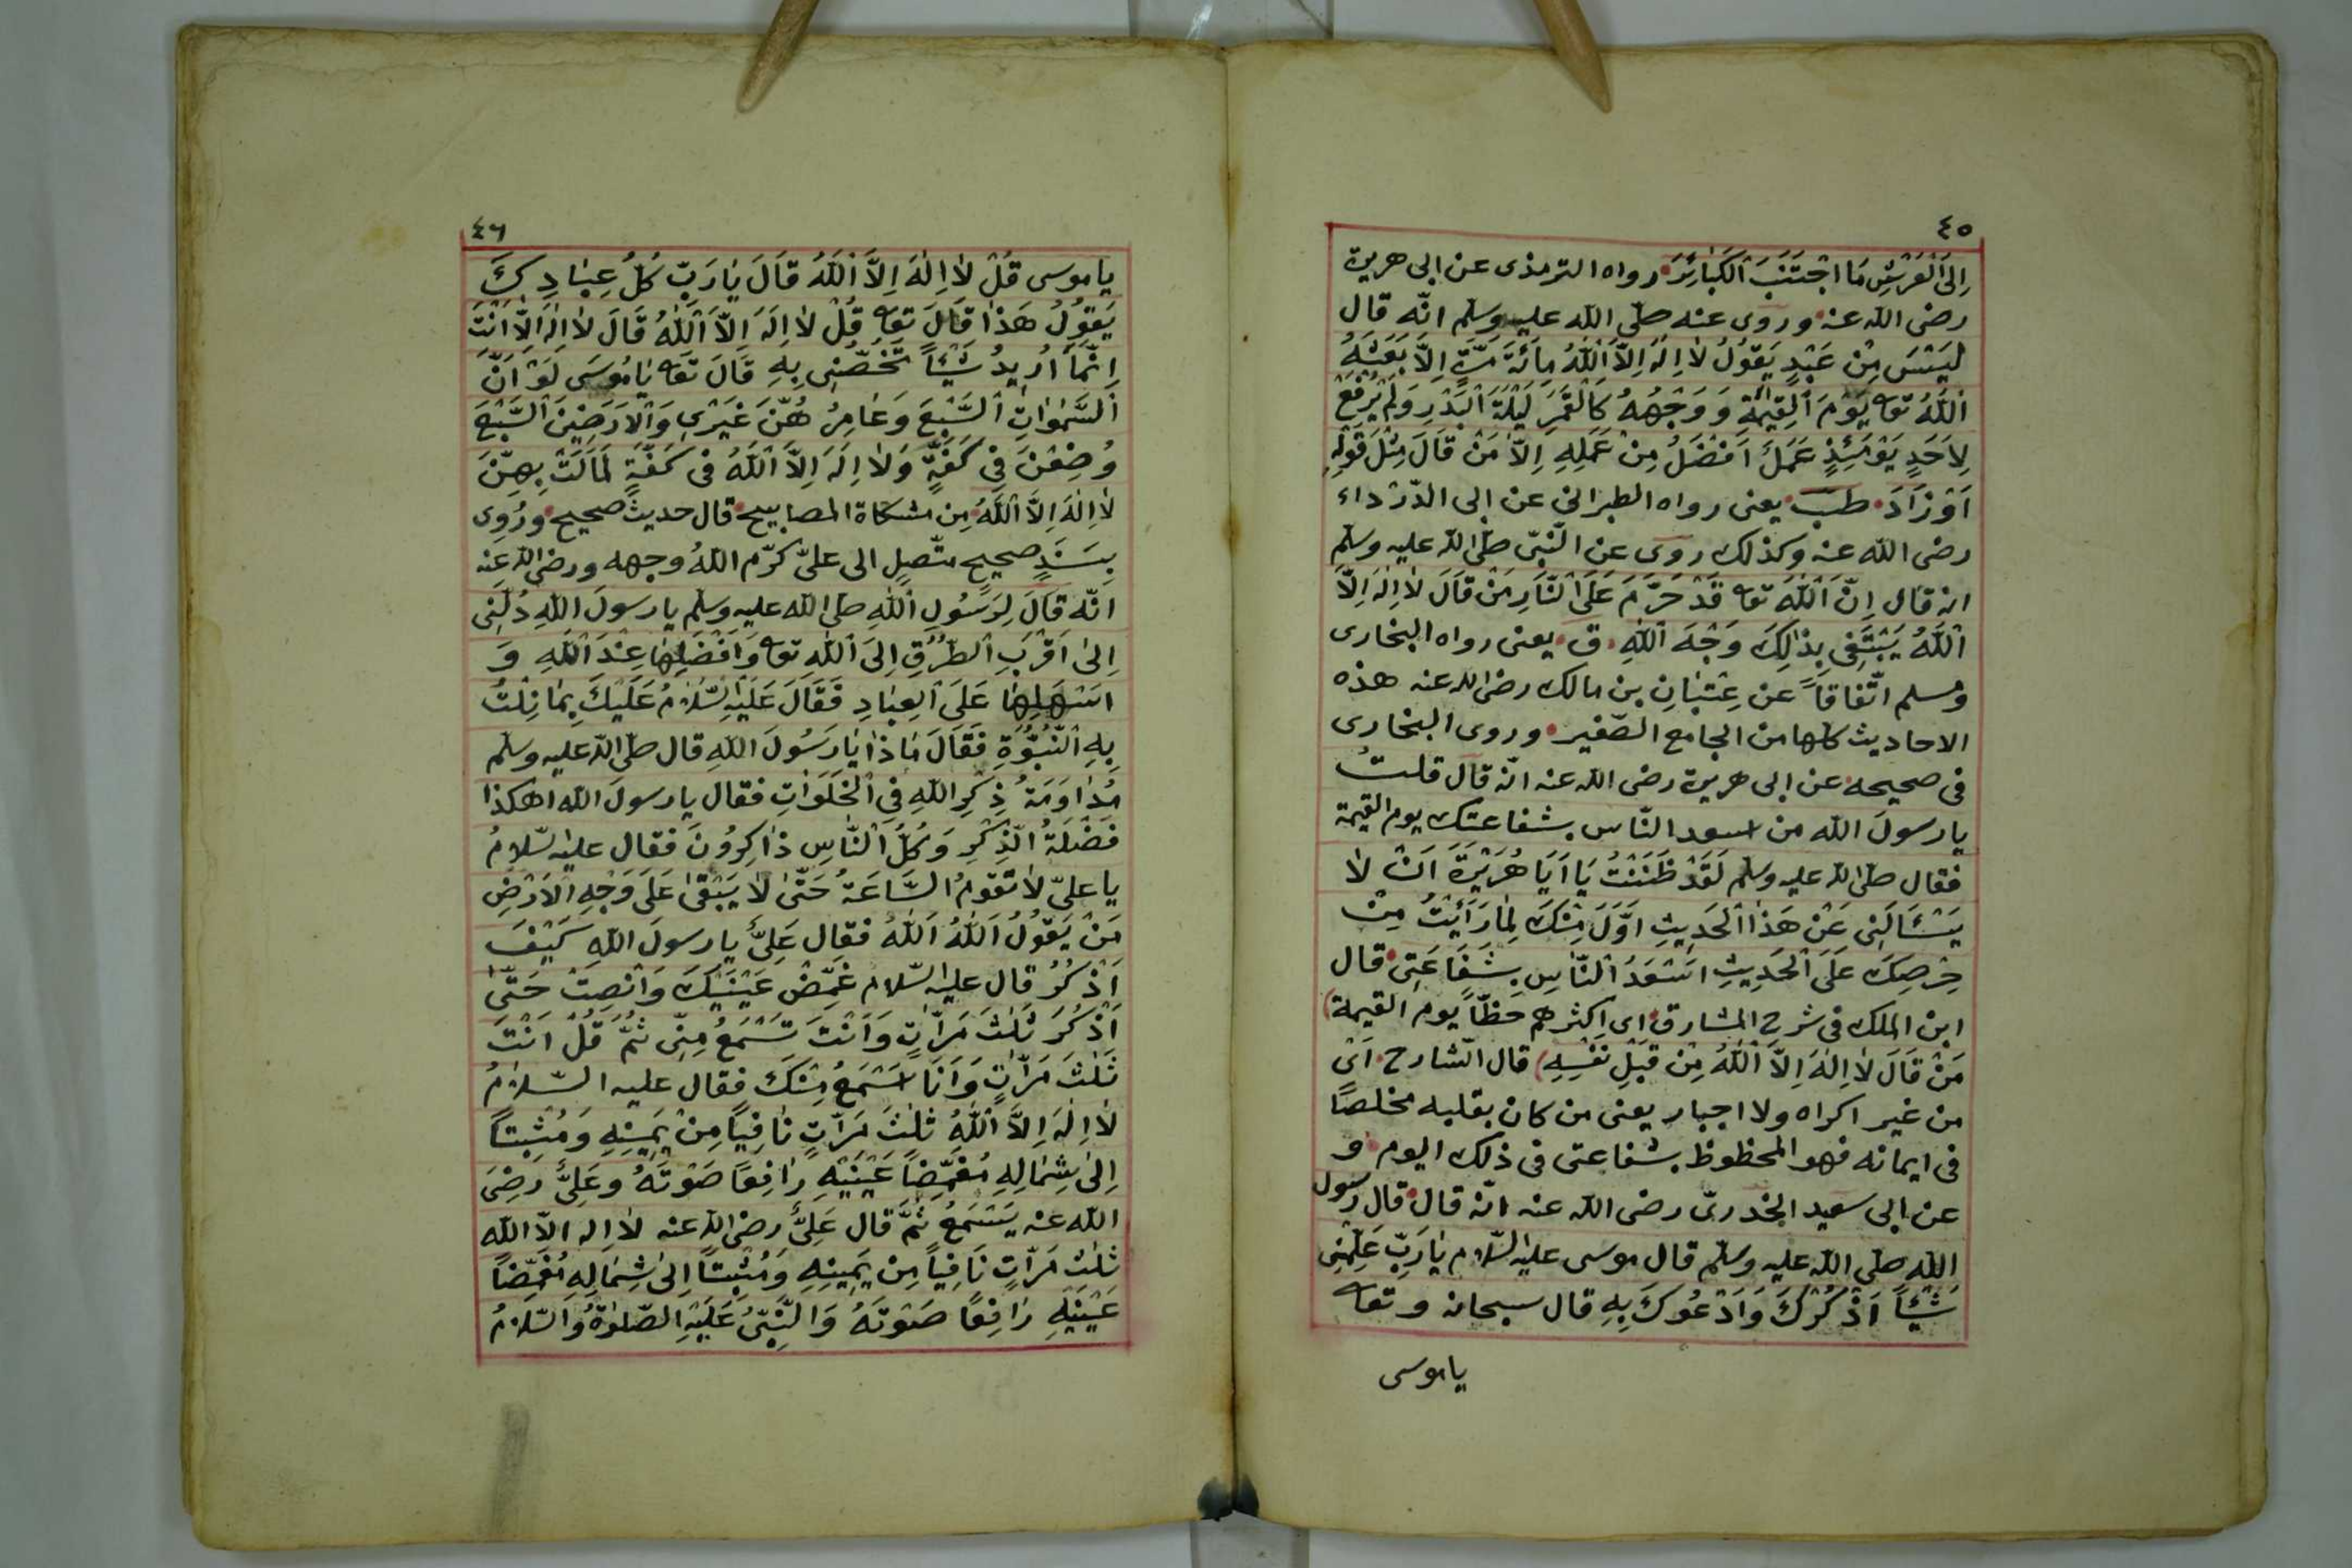 ٤٥
اِلَى الْعَرْشِ مَا اجْتَنَبَ الْكَبَائِرَ رواه الترمذى عن ابى هريرة
رضى الله عنه وروى عنه صلّى الله عليه وسلم انّه قال
لَيْسَ مِنْ عَبْدٍ يَقُولُ لَا اِلٰهَ اِلَّا اللّٰهُ مِائَةَ مَرَّةٍ اِلَّا بَعَثَهُ
اللّٰهُ تعا يَوْمَ الْقِيٰمَةِ وَوَجْهُهُ كَالْقَمَرِ لَيْلَةَ الْبَدْرِ وَلَمْ يُرْفَعْ
لِاَحَدٍ يَوْمَئِذٍ عَمَلٌ اَفْضَلُ مِنْ عَمَلِهِ اِلَّا مَنْ قَالَ مِثْلَ قَوْلِهِ
اَوْ زَادَ طب يعنى رواه الطبرانى عن ابى الدّرْداء
رضى الله عنه وكذلك روى عن النّبىّ صلّى الله عليه وسلم
انه قال اِنَّ اللّٰهَ تعا قَدْ حَرَّمَ عَلَى النَّارِ مَنْ قَالَ لَا اِلٰهَ اِلَّا
اللّٰهُ يَبْتَغِى بِذٰلِكَ وَجْهَ اللّٰهِ ق يعنى رواه البخارى
ومسلم اتّفاقاً عن عِتْبَانِ بن مالك رضى الله عنه هذه
الاحاديث كلها من الجامع الصّغير وروى البخارى
فى صحيحه عن ابى هريرة رضى الله عنه انّه قال قلتُ
يا رسولَ الله من اسعد النّاس بشفاعتك يوم القيمة
فقال صلّى الله عليه وسلم لَقَدْ ظَنَنْتُ يَا اَبَا هُرَيْرَةَ اَنْ لَا
يَسْئَالَنِى عَنْ هَذَا الْحَدِيثِ اَوَّلَ مِنْكَ لِمَا رَأَيْتُ مِنْ
حِرْصِكَ عَلَى الْحَدِيثِ اَسْعَدُ النَّاسِ بِشَفَاعَتِى قال
ابن الملك فى شرح المشارق اى اكثرهم حظّاً يوم القيمة)
مَنْ قَالَ لَا اِلٰهَ اِلَّا اللّٰهُ مِنْ قِبَلِ نَفْسِهِ) قال الشّارح اَىْ
من غير اكراه ولا اجبار يعنى من كان بقلبه مخلصًا
فى ايمانه فهو المحظوظ بشفاعتى فى ذلك اليوم و
عن ابى سعيد الخدرىّ رضى الله عنه انّه قال قال رسول
الله صلّى الله عليه وسلم قال موسى عليه السّلام يَا رَبِّ عَلِّمْنِى
شَيْئاً اَذْكُرْكَ وَاَدْعُوكَ بِهِ قال سبحانه وتعا
يا موسى
٤٦
يا موسى قُلْ لَا اِلٰهَ اِلَّا اللّٰهُ قَالَ يَا رَبِّ كُلُّ عِبَادِكَ
يَقُولُ هَذَا قَالَ تعا قُلْ لَا اِلٰهَ اِلَّا اللّٰهُ قَالَ لَا اِلٰهَ اِلَّا اَنْتَ
اِنَّمَا اُرِيدُ شَيْئاً تَخُصُّنِى بِهِ قَالَ تعا يَا مُوسَى لَوْ اَنَّ
السَّمٰوَاتِ السَّبْعَ وَعَامِرُهُنَّ غَيْرِى وَالْاَرَضِينَ السَّبْعَ
وُضِعْنَ فِى كَفَّةٍ وَلَا اِلٰهَ اِلَّا اللّٰهُ فى كَفَّةٍ لَمَالَتْ بِهِنَّ
لَا اِلٰهَ اِلَّا اللّٰهُ مِن مشكاة المصابيح قال حديث صحيح ورُوِى
بِسَنَدٍ صحيحٍ متّصِلٍ الى علىّ كرّم اللهُ وجهه ورضى الله عنه
انّه قَالَ لِرَسُولِ اللّٰهِ صلى الله عليه وسلم يا رسولَ اللهِ دُلَّنِى
اِلَى اَقْرَبِ الطُّرُقِ اِلَى اللّٰهِ تعا وَاَفْضَلِهَا عِنْدَ اللّٰهِ وَ
اَسْهَلِهَا عَلَى الْعِبَادِ فَقَالَ عَلَيْهِ السَّلَامُ عَلَيْكَ بِمَا نِلْتُ
بِهِ النُّبُوَّةِ فَقَالَ مَا ذَا يَا رَسُولَ اللهِ قال صلّى الله عليه وسلم
مُدَاوَمَةُ ذِكْرِ اللهِ فِى الْخَلَوَاتِ فقال يا رسولَ الله اهكذا
فَضْلَةُ الذِّكْرِ وَكُلُّ النَّاسِ ذَاكِرُونَ فقال عليه السّلامُ
يا علىّ لَا تَقُومُ السَّاعَةُ حَتَّى لَا يَبْقَى عَلَى وَجْهِ الْاَرْضِ
مَنْ يَقُولُ اَللّٰهُ اَللّٰهُ فقال عَلِىٌّ يا رسولَ اللهِ كَيْفَ
اَذْكُرُ قال عليه السّلام غَمِّضْ عَيْنَيْكَ وَانْصِتْ حَتَّى
اَذْكُرَ ثَلٰثَ مَرَّاتٍ وَاَنْتَ تَسْمَعُ مِنِّى ثُمَّ قُلْ اَنْتَ
ثَلٰثَ مَرَّاتٍ وَاَنَا اَسْمَعُ مِنْكَ فقال عليه السّلَامُ
لَا اِلٰهَ اِلَّا اللّٰهُ ثَلٰثَ مَرَّاتٍ نَافِيًا مِنْ يَمِينِهِ وَمُثْبِتاً
اِلَى شِمَالِهِ مُغَمِّضاً عَيْنَيْهِ رَافِعًا صَوْتَهُ وعَلِىٌّ رَضِىَ
الله عنه يَسْتَمِعُ ثُمَّ قال عَلِىٌّ رضى الله عنه لا اله الّا الله
ثَلٰثَ مَرَّاتٍ نَافِيًا مِنْ يَمِينِهِ وَمُثْبِتاً اِلَى شِمَالِهِ مُغَمِّضاً
عَيْنَيْهِ رَافِعًا صَوْتَهُ وَالنَّبِىُّ عَلَيْهِ الصَّلٰوةُ وَالسَّلَامُ